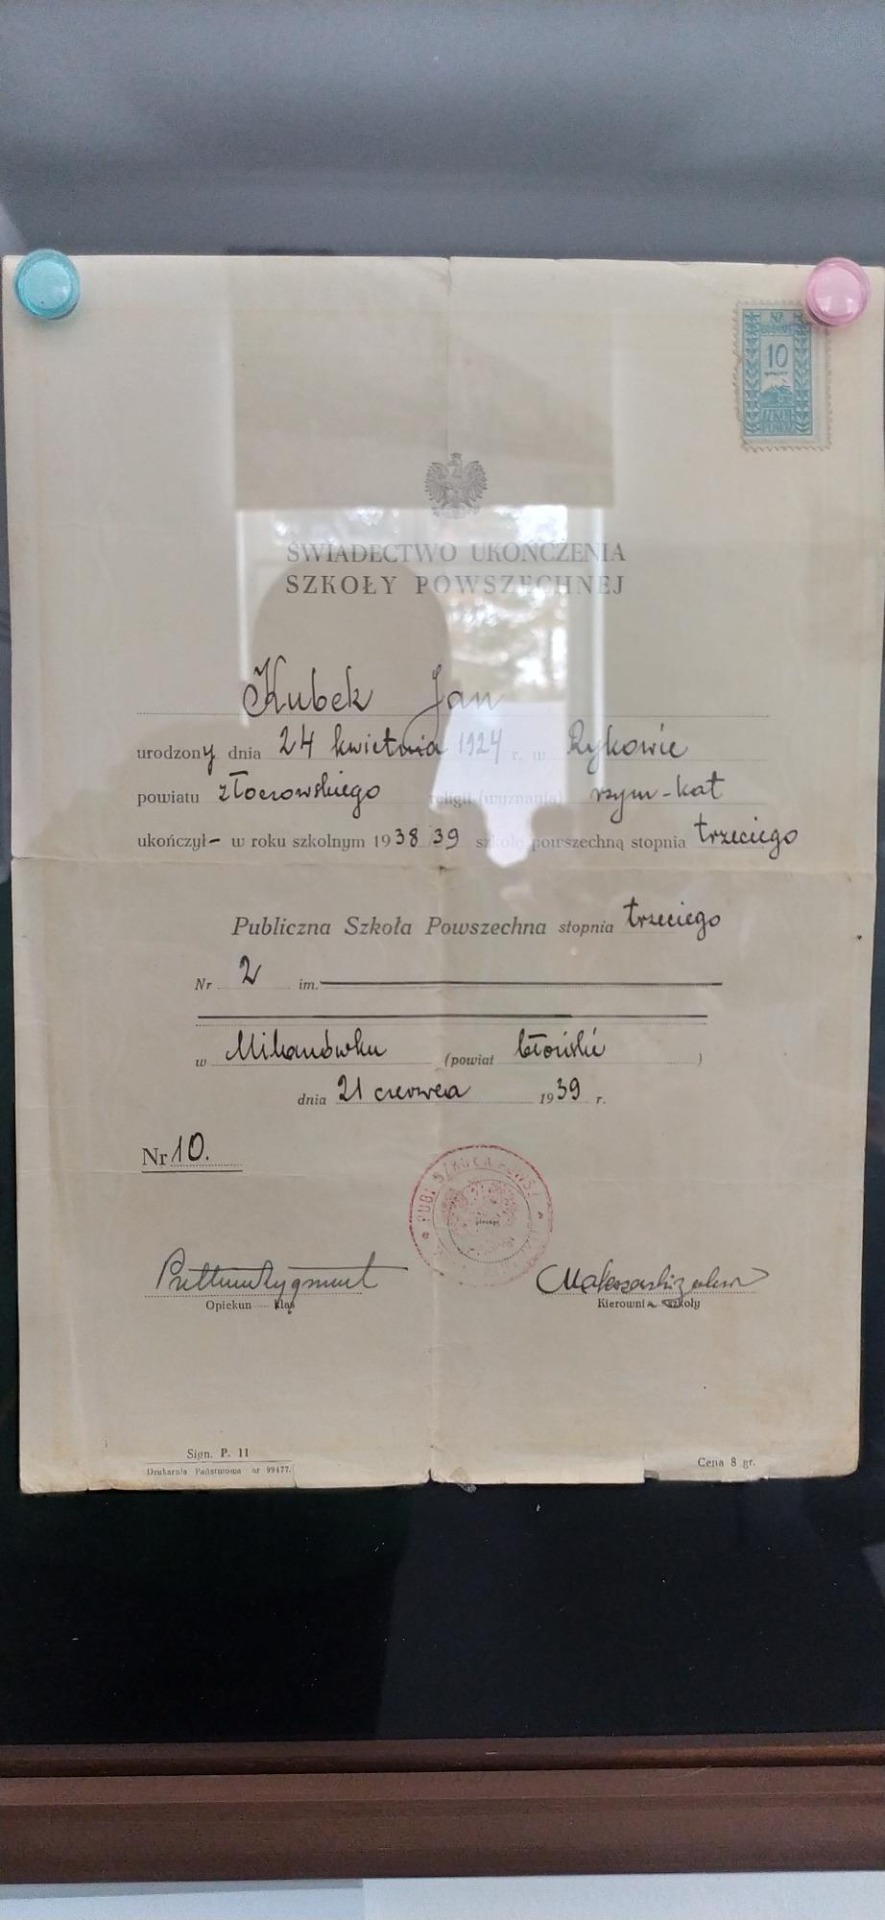 10
SZKOŁ
POWSZ
ŚWIADECTWO UKOŃCZENIA
SZKOŁY POWSZECHNEJ
Kubek Jan
urodzony dnia 24 kwietnia 1924 r. w Rykowie
powiatu złoczowskiego religii (wyznania) rzym-kat
ukończył- w roku szkolnym 1938/39 szkołę powszechną stopnia trzeciego
Publiczna Szkoła Powszechna stopnia trzeciego
Nr 2 im.
w Milanówku (powiat błoński)
dnia 21 czerwca 1939 r.
Nr 10.
PUBL. SZKOŁA POWSZ
Opiekun klas
Kierownik szkoły
Sign. P. 11
Drukarnia Państwowa nr 99477.
Cena 8 gr.